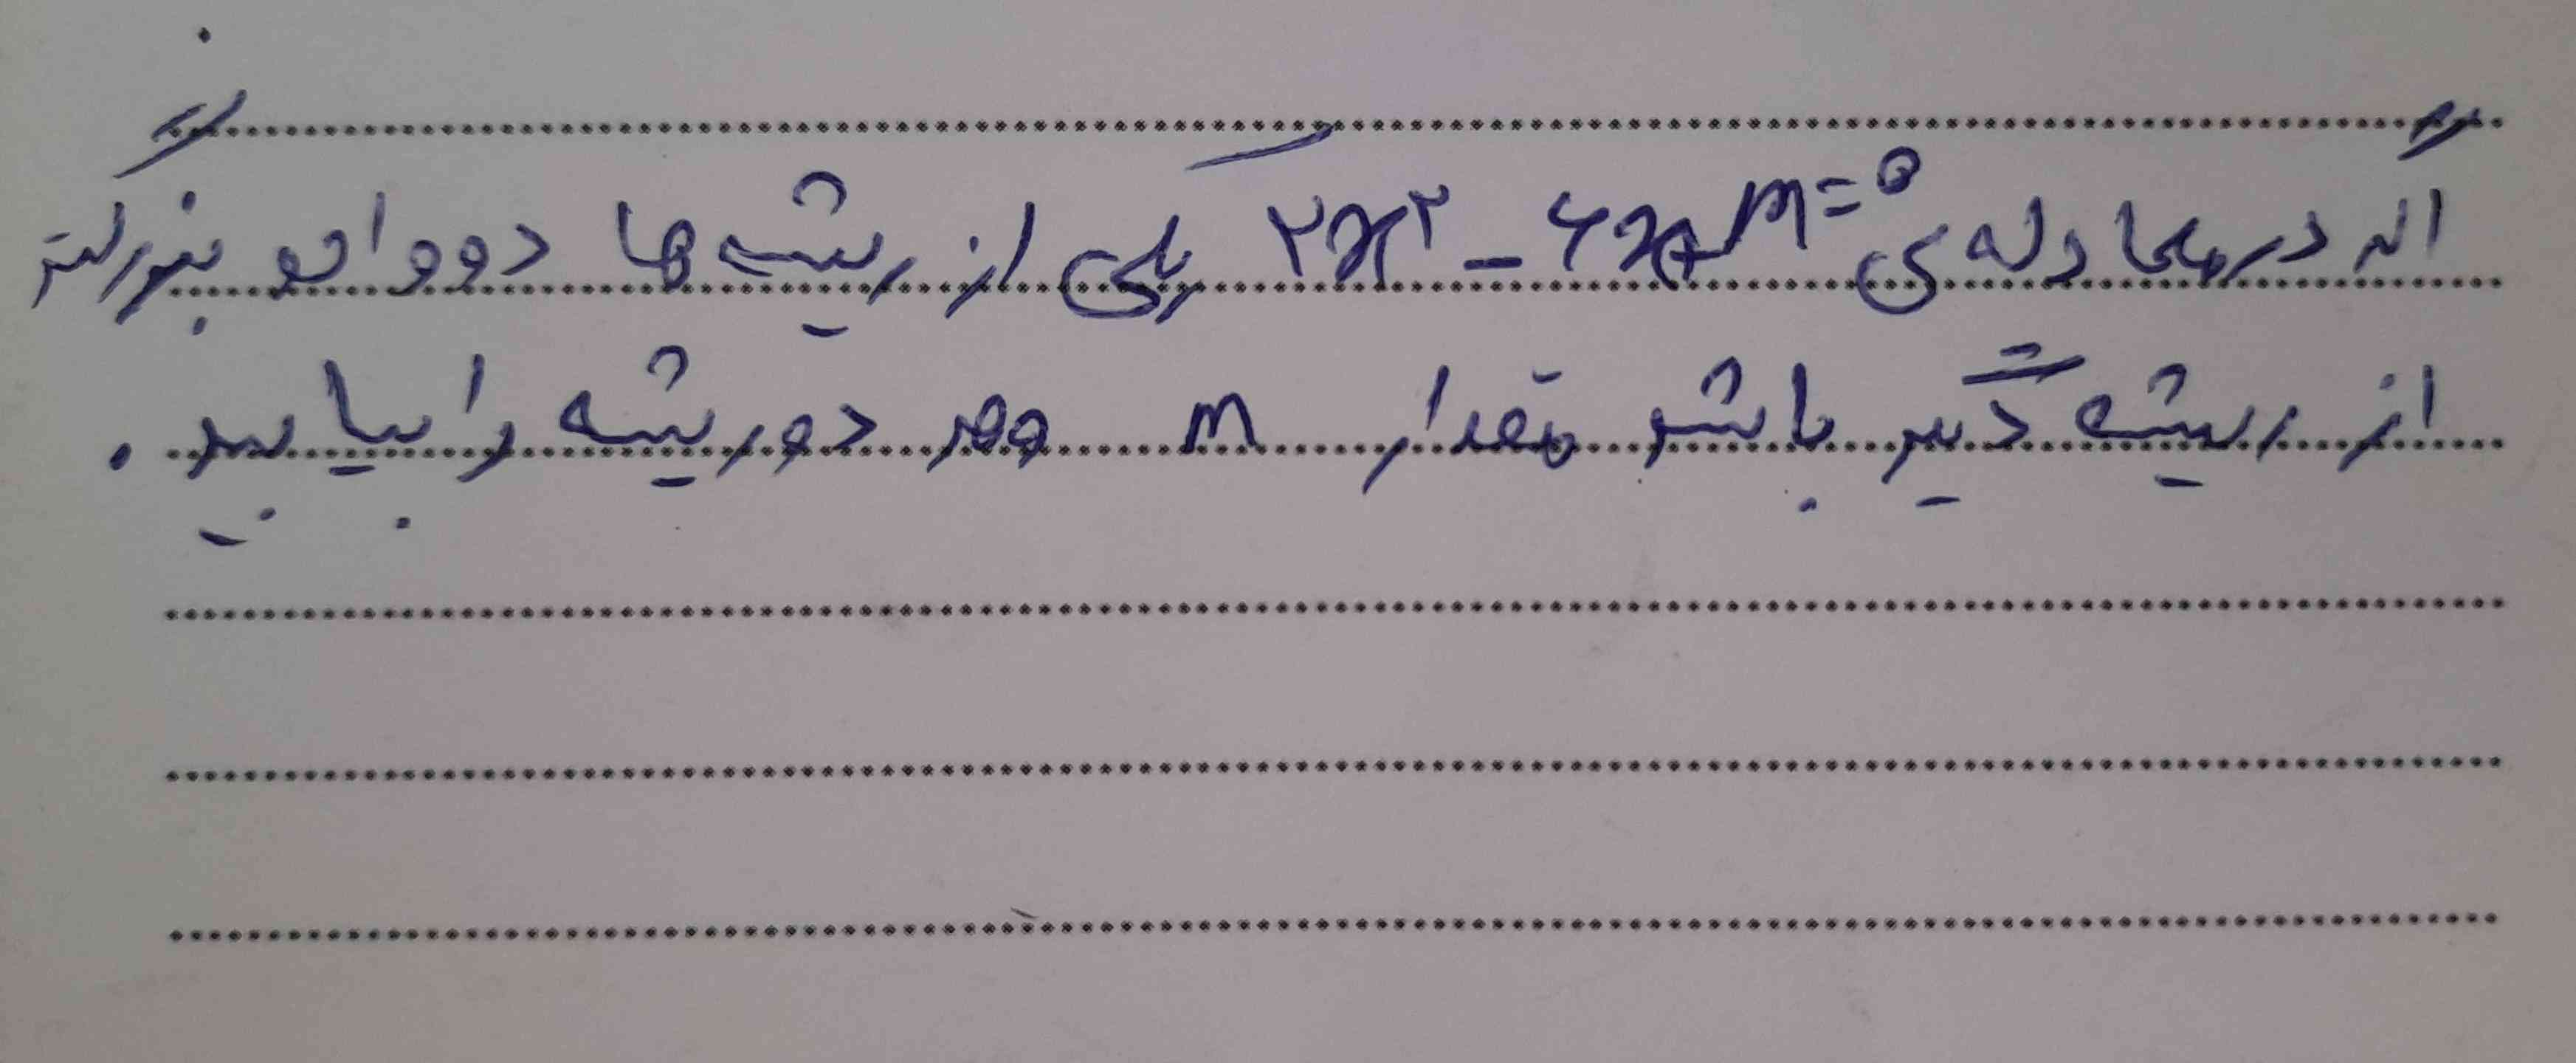 اگر در معادله ی ۲x۲ - ۶x + m = ۰ یکی از ریشه ها دو واحد بزرگتر
از ریشه دیگر باشد مقدار m و هر دو ریشه را بیابید .